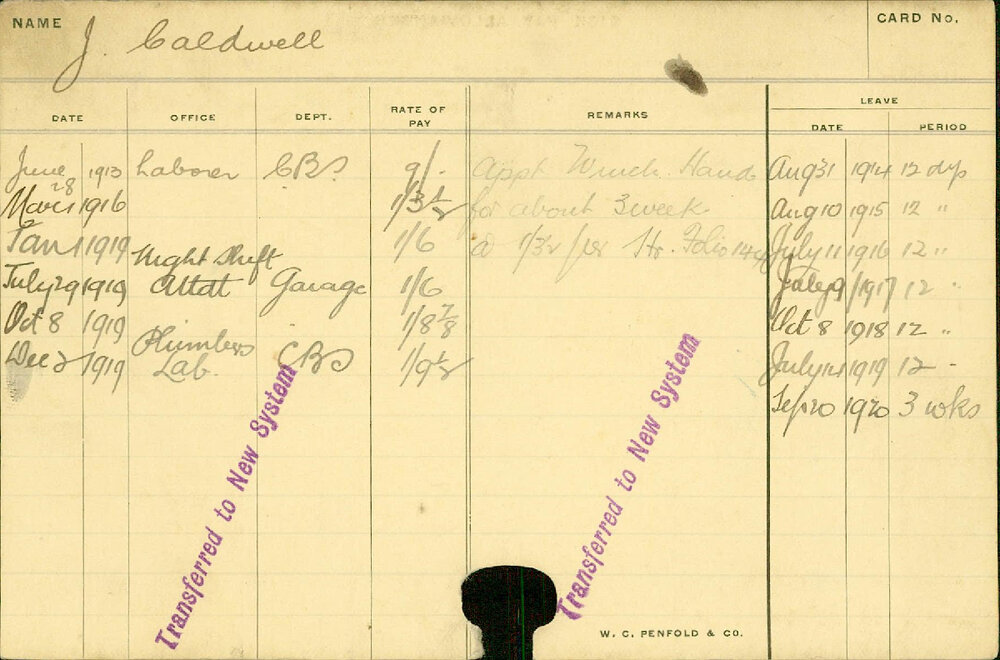 NAME J. Caldwell CARD No.
DATE OFFICE DEPT. RATE OF PAY REMARKS LEAVE
DATE PERIOD
June 28 1913 Laborer CBS 9/- Appt Winch Hand Aug 31 1914 12 dys
Mar 1 1916 1/3½ for about 3 week Aug 10 1915 12 "
Jan 1 1919 1/6 @ 1/3½ per Hr. Folio July 11 1916 12 "
Night Shift
July 29 1919 Attdt Garage 1/6 July 9 1917 12 "
Oct 8 1919 1/8⅞ Oct 8 1918 12 "
Plumbers
Dec 2 1919 Lab. CBS 1/9½ July 14 1919 12 -
Sep 20 1920 3 wks
Transferred to New System
Transferred to New System
W. C. PENFOLD & CO.